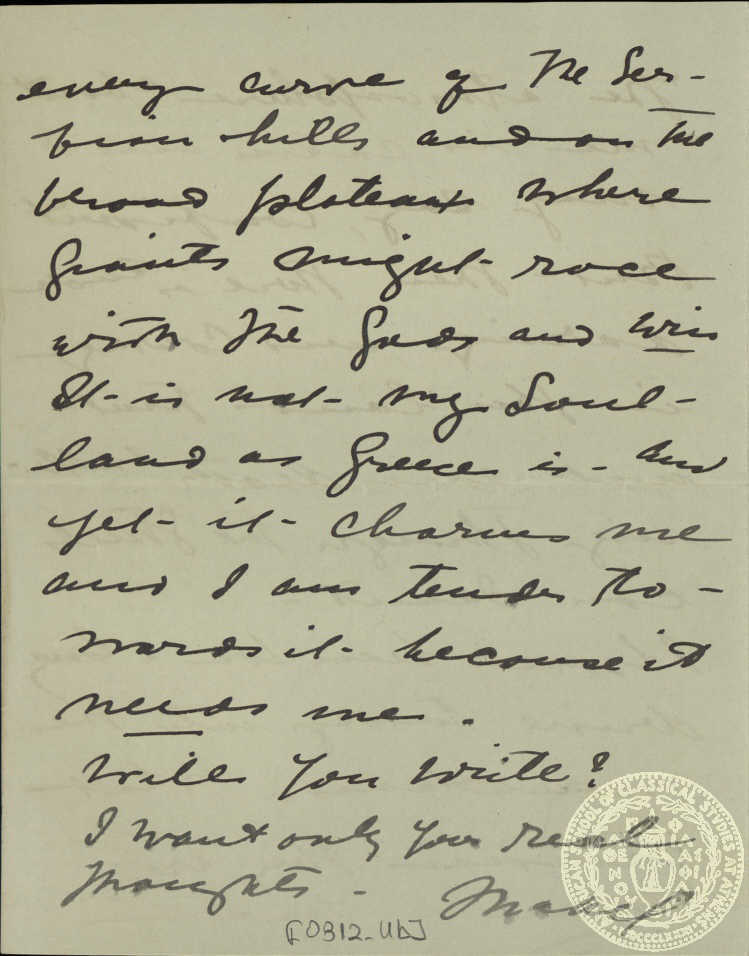 every curve of the Ser-
bian hills and on the
broad plateaux where
Giants might race
with the Gods and win
It is not my Soul-
land as Greece is - And
yet it charms me
and I am tender to-
wards it because it
needs me.
Will you write?
I want only your real
thoughts -
[0312_Ub]
AMERICAN SCHOOL OF CLASSICAL STUDIES AT ATHENS
MDCCCLXXXI